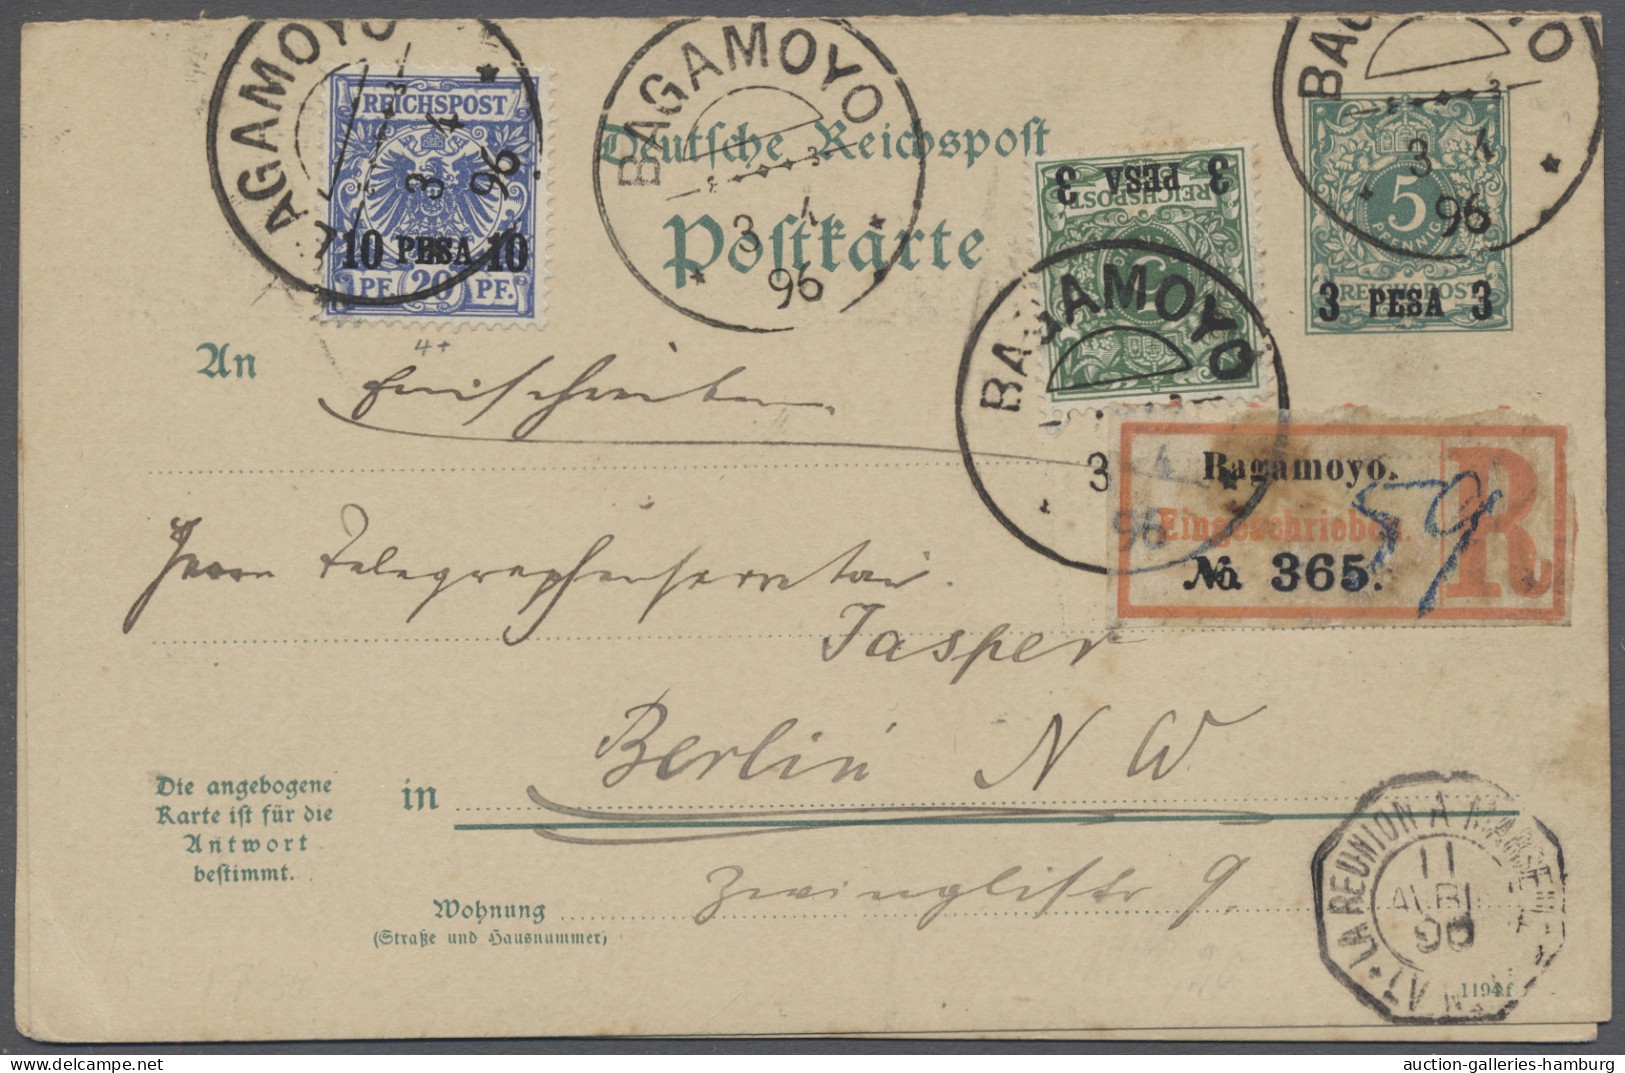 BAGAMOYO
3 4
96
REICHSPOST
10 PESA 10
PF. 20 PF.
4+
BAGAMOYO
3 4
96
Deutsche Reichspost
Postkarte
3 PESA 3
REICHSPOST
5
BAGAMOYO
3 4
96
BAGAMOYO
3 4
96
5
PFENNIG
REICHSPOST
3 PESA 3
An
Einschreiben
Bagamoyo.
Eingeschrieben.
R
№ 365.
59
Herrn Telegraphensecretair
Jasper
in
Berlin N W
Zwinglistr 9.
Die angebogene
Karte ist für die
Antwort
bestimmt.
Wohnung
(Straße und Hausnummer)
LA REUNION A MARSEILLE
11
AVRIL
96
1194f
auction-galleries-hamburg